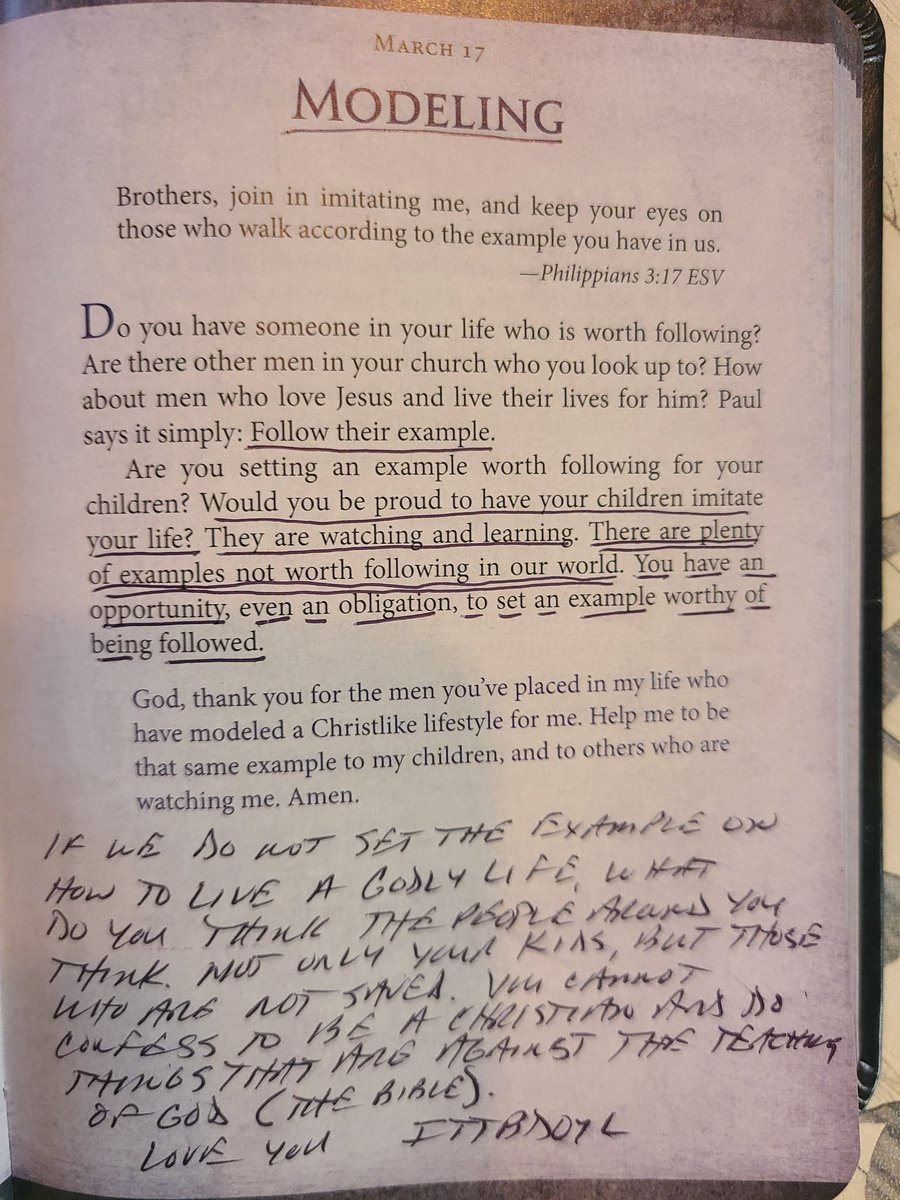 MARCH 17
MODELING
Brothers, join in imitating me, and keep your eyes on
those who walk according to the example you have in us.
—Philippians 3:17 ESV
Do you have someone in your life who is worth following?
Are there other men in your church who you look up to? How
about men who love Jesus and live their lives for him? Paul
says it simply: Follow their example.
Are you setting an example worth following for your
children? Would you be proud to have your children imitate
your life? They are watching and learning. There are plenty
of examples not worth following in our world. You have an
opportunity, even an obligation, to set an example worthy of
being followed.
God, thank you for the men you've placed in my life who
have modeled a Christlike lifestyle for me. Help me to be
that same example to my children, and to others who are
watching me. Amen.
IF WE DO NOT SET THE EXAMPLE ON
HOW TO LIVE A GODLY LIFE, WHAT
DO YOU THINK THE PEOPLE AROUND YOU
THINK. NOT ONLY YOUR KIDS, BUT THOSE
WHO ARE NOT SAVED. YOU CANNOT
CONFESS TO BE A CHRISTIAN AND DO
THINGS THAT ARE AGAINST THE TEACHING
OF GOD (THE BIBLE).
LOVE YOU ITTBDOYL